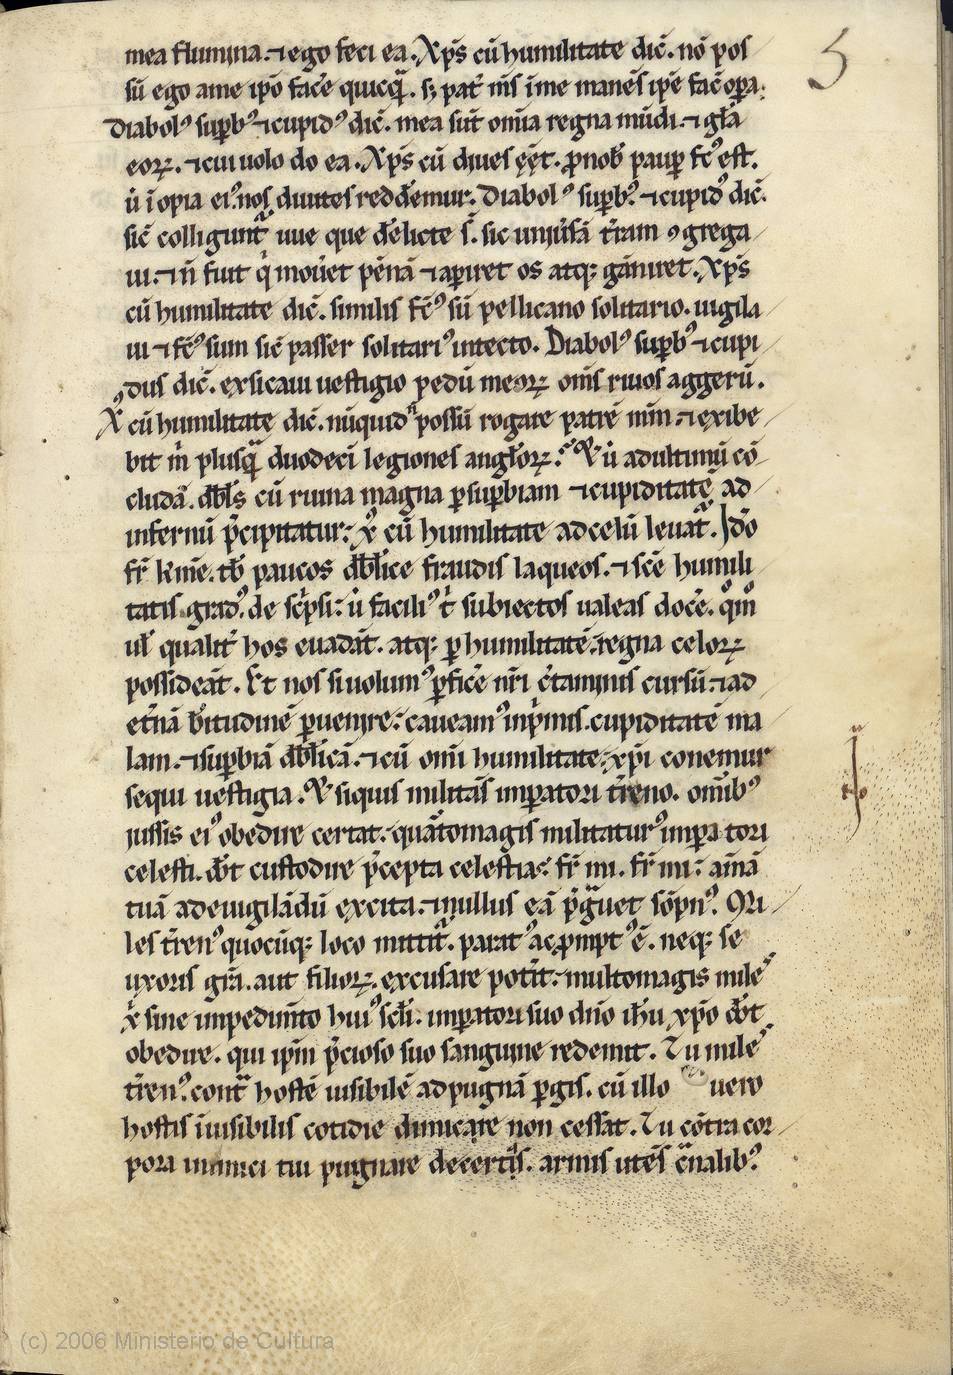 mea flumina. ⁊ ego feci ea. Xp̄s cū humilitate dic̄. nō pos
5
sū ego a me ip̄o fac̄e quicq̃. s; pat̄ m̄s ī me manēs ip̄e fac̄ oꝑa.
Diabolꝰ suꝑbꝰ ⁊ cupidꝰ dic̄. mea sūt om̄ia regna mūdi. ⁊ gl̄a
eoꝝ. ⁊ cui uolo do ea. Xp̄s cū diues eēt. ꝓ nob̄ paup̄ fc̄ꝰ est.
ut̄ īopia eiꝰ nos diuites redd̄emur. Diabolꝰ suꝑbꝰ. ⁊ cupidꝰ dic̄.
sic̄ colligunt̃ uue que d̄elicte s̄. sic uniūsā t̄ram ꝯgrega
ui. ⁊ n̄ fuit q̇ mou̅et pēnā ⁊ aꝑiret os atq; gāniret. Xp̄s
cū humilitate dic̄. similis fc̄ꝰ sū pellicano solitario. uigila
ui ⁊ fc̄ꝰ sum sic̄ passer solitariꝰ in tecto. Diabolꝰ suꝑbꝰ ⁊ cupi
dus dic̄. exsicaui uestigio pedū meoꝝ om̄s riuos aggerū.
Xꝰ cū humilitate dic̄. nūquid possū rogare patrē mm̄. ⁊ exibe
bit m̄ plusq̃ duodeci legiones angl̄oꝝ. ut̄ ad ultimū cō
cludā. dbl̄s cū ruina magna ꝑ suꝑbiam ⁊ cupiditatē ad
infernū p̄cipitatur: xꝰ cū humilitate ad celū leuat̃. Id̄o
fr̄ km̄e. tb̄ paucos dbl̄ice fraudis laqueos. ⁊ sc̄e humili
tatis gradꝰ. de sc̄psi: ut̄ faciliꝰ t̄ subiectos ualeas doc̄e. qm̊
ul̄ qualit̄ hos euadāt. atq; ꝑ humilitatē. regna celoꝝ
possideāt. Et nos si uolumꝰ ꝑfic̄e nr̄i c̄taminis cursū. ⁊ ad
et̄nā b̄titudinē ꝑuenire: caueamꝰ inp̄mis. cupiditatē ma
lam. ⁊ suꝑbiā dbl̄icā. ⁊ cū om̄i humilitate. xp̄i conemur
sequi uestigia. siquis militās imꝑatori t̄reno. om̄ibꝰ
iussis eiꝰ obedire certat. quātomagis militaturꝰ imꝑatori
celesti. db̄t custodire p̄cepta celestia: fr̄ mi. fr̄ mi: aīmā
tuā ad euigilādū excita. ⁊ nullus eā p̄g̃uet sōpnꝰ. Mi
les t̄renꝰ quocūq; loco mittit̃. paratꝰ ac ꝓmptꝰ ē. neq; se
uxoris gr̄a. aut filioꝝ. excusare pot̄it: multomagis mile
x̄ sine impedim̄to huiꝰ scl̄i: imꝑatori suo dn̄o ih̄u xp̄o db̄t
obedire. qui ip̄m p̄cioso suo sanguine redemit. Tu mile
t̄renꝰ. cont̃ hostē uisibilē ad pugnā ꝑgis. cū illo uero
hostis īuisibilis cotidie dimicare non cessat. Tu cōtra cor
pora inimici tui pugnare decertās. armis utēs c̃nalibꝰ.
(c) 2006 Ministerio de Cultura